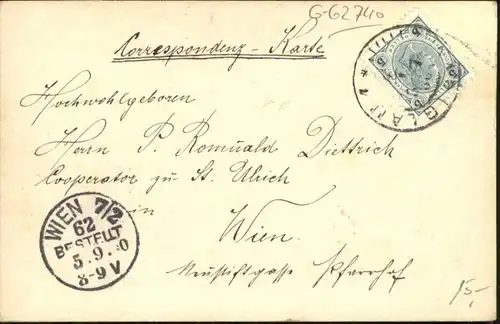 G-G2740
Correspondenz - Karte
Hochwohlgeboren
Herrn P. Romuald Diettrich
Cooperator zu St. Ulrich
in
Wien.
Neustiftgasse Pfarrhof
IGLAU
WIEN 7/2
62
BESTELLT
5.9.00
8-9 V
15,-